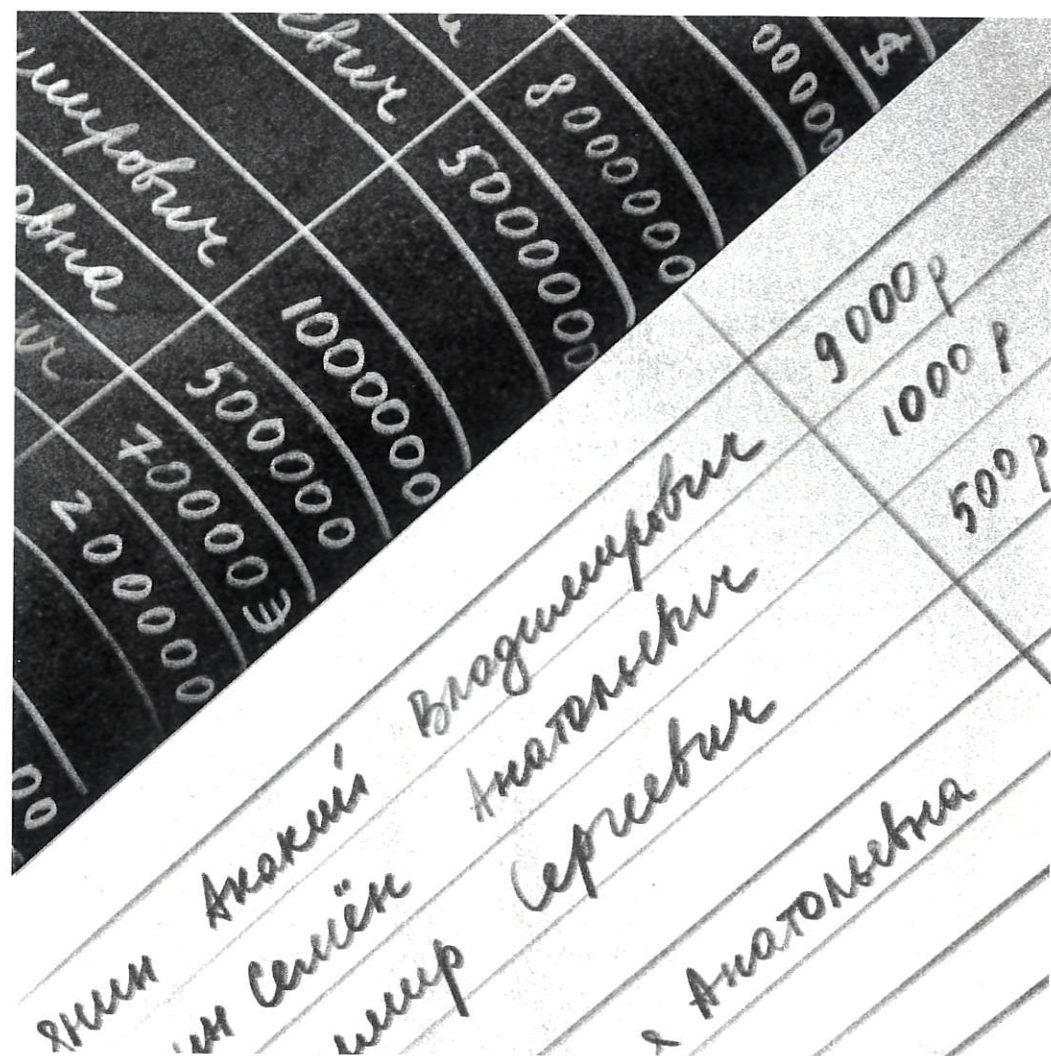 $
000000
8000000
евич 5000000
мирович 1000000
овна 500000
ич 70000€
200000
00
янин Акакий Владимирович 9000р
ин Семён Анатольевич 1000р
имир Сергеевич 500р
я Анатольевна